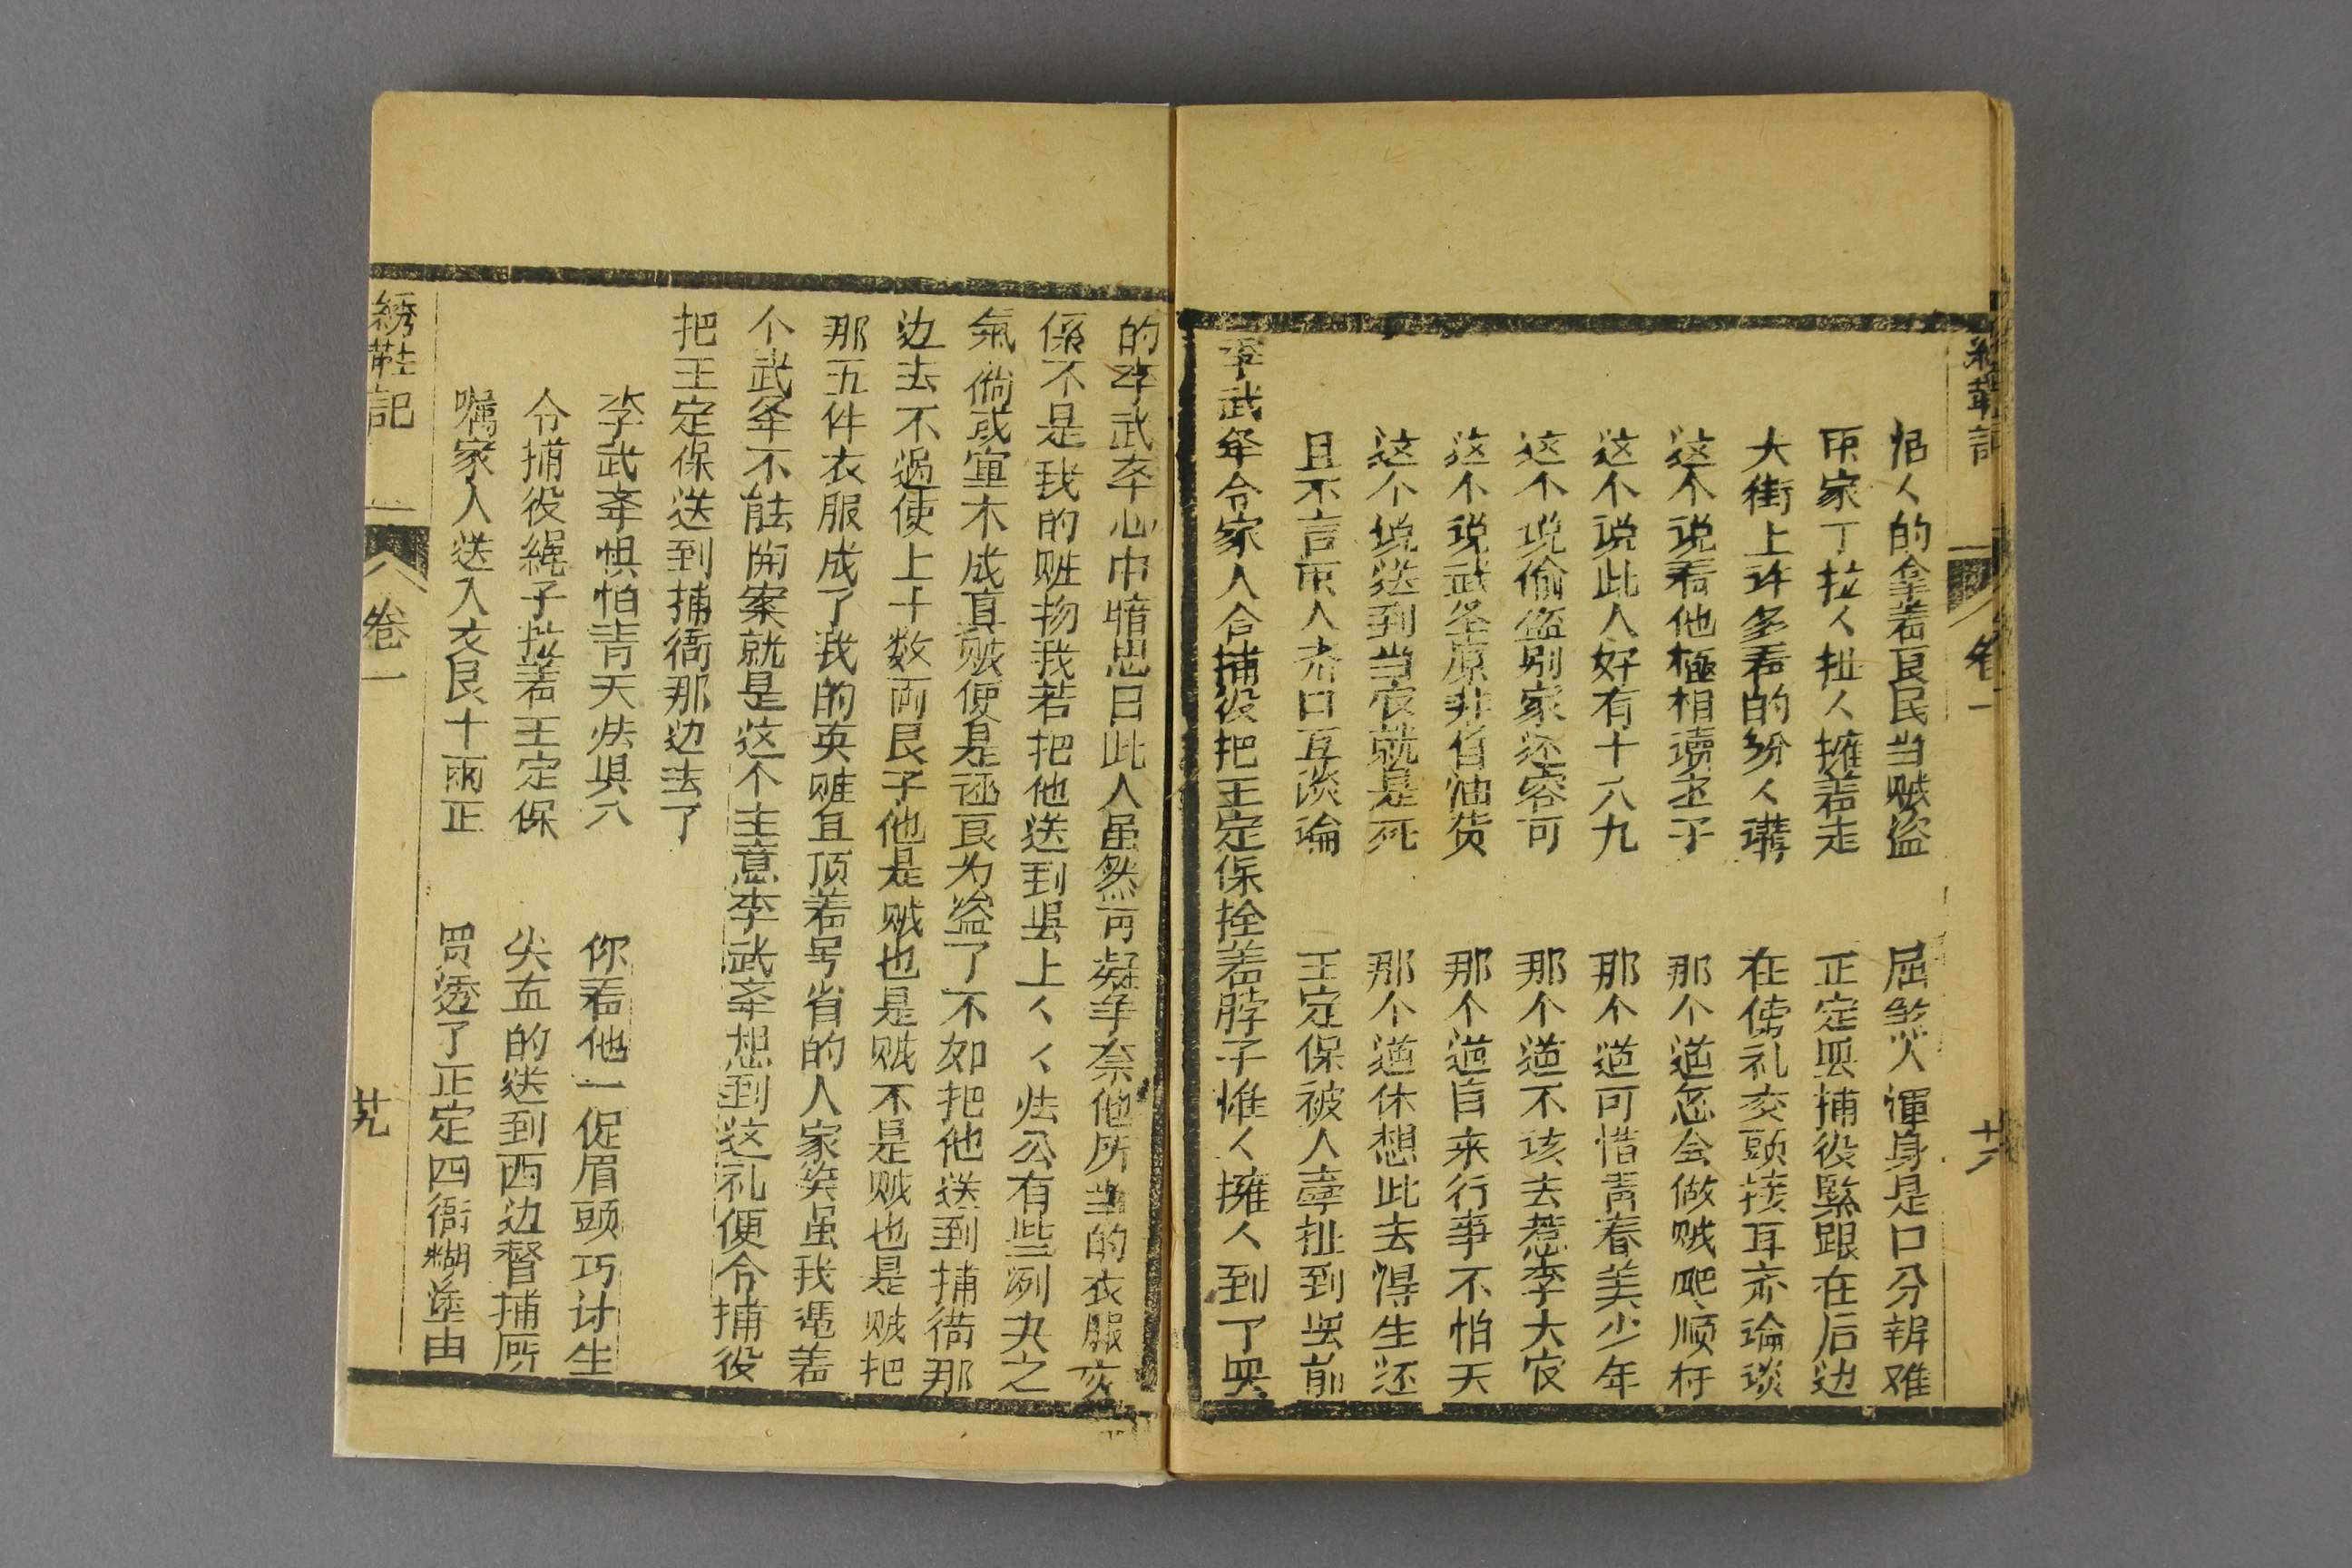 綉鞋記
卷一
廿八
恬人的拿着良民当贼盗 屈煞人渾身是口分辨难
家丁拉人扯人擁着走 正定县捕役緊跟在后边
大街上许多看的紛人講 在傍礼交頭接耳亦論谈
这个说看他極相读主子 那个道怎会做贼爬顺杆
这个说此人好有十八九 那个道可惜青春美少年
这个说偷盗别家还容可 那个道不该去惹李大官
这个说武举原非省油货 那个道自来行事不怕天
这个说送到当官就是死 那个道休想此去得生还
且不言人齐口互谈論 王定保被人牽扯到县前
李武举令家人合捕役把王定保拴着脖子惟人擁人到了县
的李武举心中暗思曰此人虽然可疑争奈他所当的衣服
係不是我的贓物我若把他送到县上人人法公有些刚决之
氣倘或宣木成真贼便是诬良为盗了不如把他送到捕衙那
边去不過使上十数両艮子他是贼也是贼不是贼也是贼把
那五件衣服成了我的英贓且顶着号省的人家笑虽我遮着
个武举不能開案就是这个主意李武举想到这礼便令捕役
把王定保送到捕衙那边去了
李武举惧怕青天法县六 你看他一促眉頭巧计生
令捕役繩子拉着王定保 尖血的送到西边督捕所
嘱家人送入文艮十兩正 買透了正定四衙糊塗由
綉鞋記
卷一
廿九